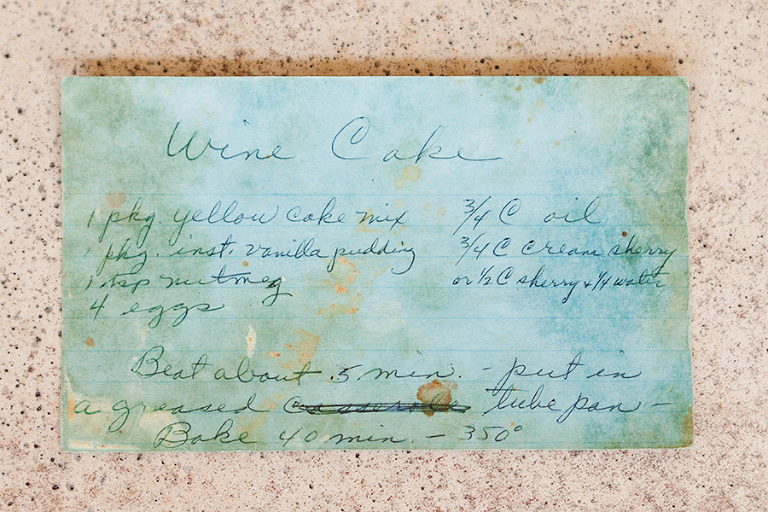 Wine Cake
1 pkg. yellow cake mix
1 pkg. inst. vanilla pudding
1 tsp nutmeg
4 eggs
3/4 C oil
3/4 C cream sherry
or 1/2 C sherry + 1/4 water
Beat about 5 min. - put in
a greased casserole tube pan -
Bake 40 min. - 350°